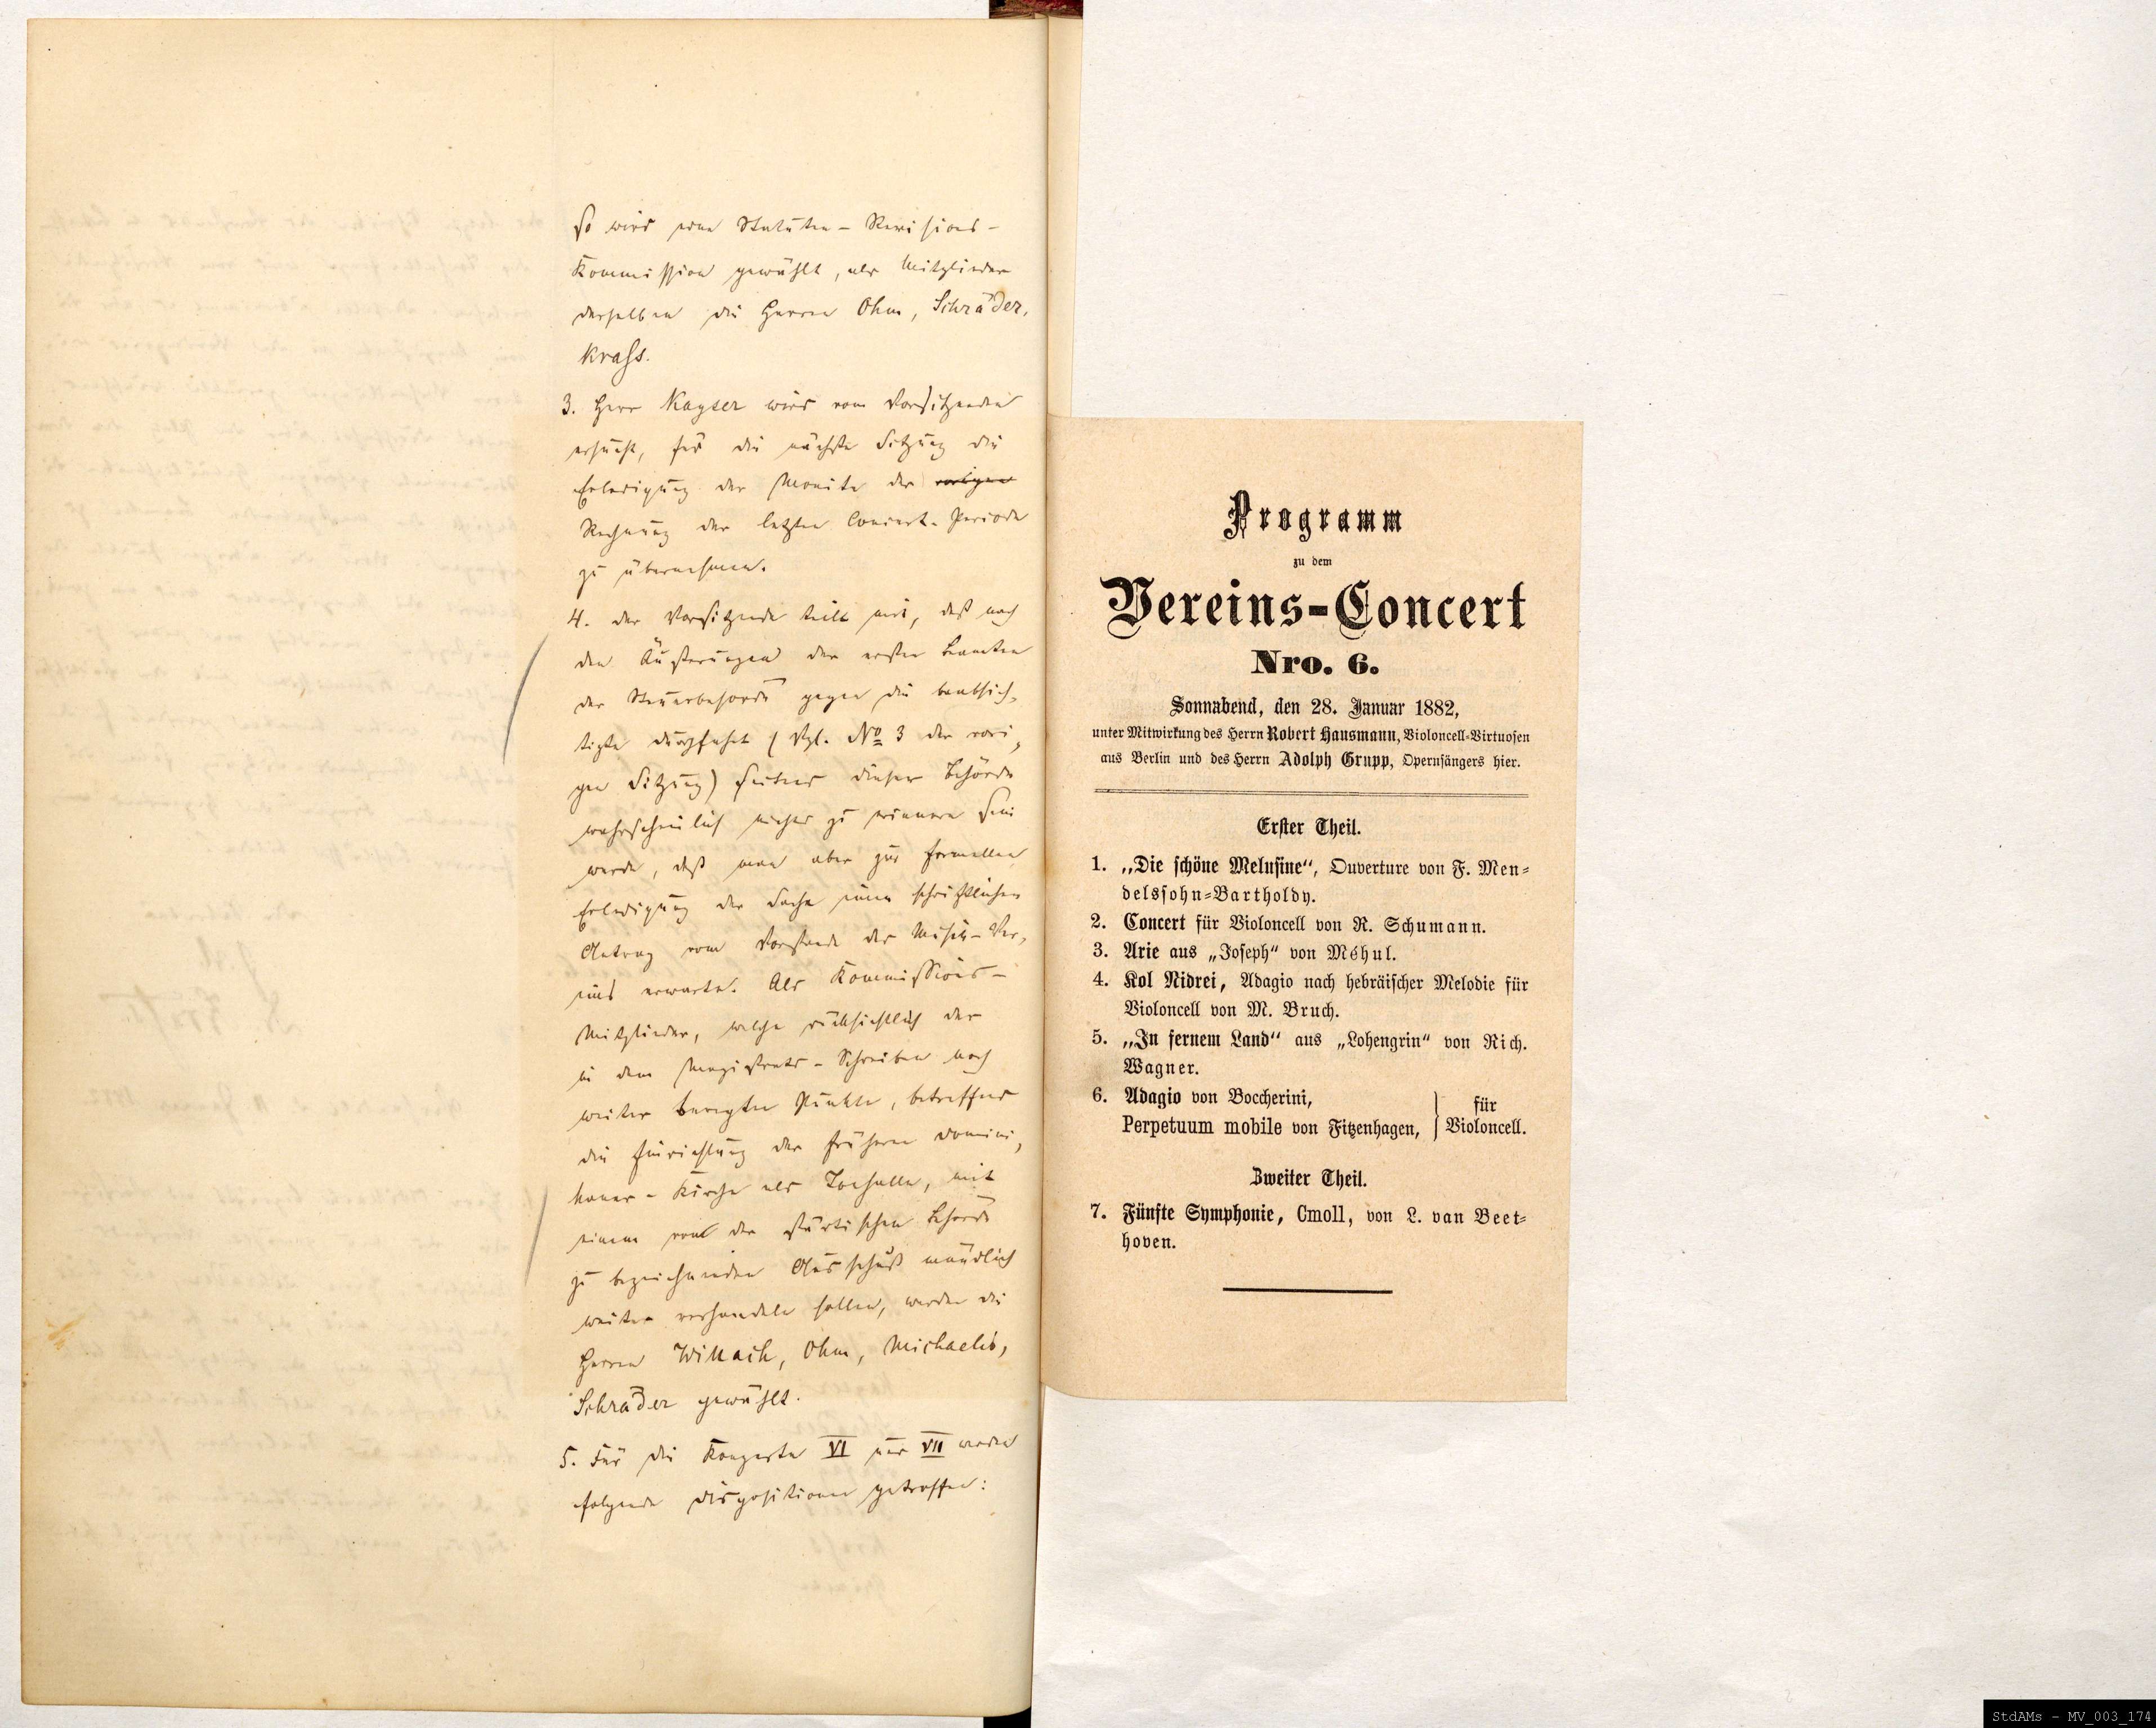 so wird eine Statuten-Revisions-
Kommission gewählt, als Mitglieder
derselben die Herren Ohm, Schräder,
Krass.
3. Herr Kayser wird vom Vorsitzenden
ersucht, für die nächste Sitzung die
Erledigung der Monita der vorigen
Rechnung der letzten Concert-Periode
zu übernehmen.
4. der Vorsitzende teilt mit, daß nach
den Äußerungen der ersten Beamten
der Steuerbehörde gegen die beabsich-
tigte Durchfahrt (Vgl. No 3 der vori-
gen Sitzung) seitens dieser Behörde
wahrscheinlich nichts zu erinnern sein
werde, daß man aber zur formellen
Erledigung der Sache einen schriftlichen
Antrag vom Vorstande des Musik-Ver-
eins erwarte. Als Kommissions-
Mitglieder, welche rücksichtlich der
in dem Magistrats-Schreiben noch
weiter beregten Punkte, betreffend
die Einrichtung der früheren Domini-
kaner-Kirche als Tonhalle, mit
einem von der städtischen Behörde
zu bezeichnenden Ausschuß mündlich
weiter verhandeln sollen, werden die
Herren Willach, Ohm, Michaelis,
Schräder gewählt.
5. Für die Konzerte VI und VII werden
folgende Dispositionen getroffen:
Programm
zu dem
Vereins-Concert
Nro. 6.
Sonnabend, den 28. Januar 1882,
unter Mitwirkung des Herrn Robert Hausmann, Violoncell-Virtuosen
aus Berlin und des Herrn Adolph Grupp, Opernsängers hier.
Erster Theil.
1. „Die schöne Melusine“, Ouverture von F. Men-
delssohn-Bartholdy.
2. Concert für Violoncell von R. Schumann.
3. Arie aus „Joseph“ von Méhul.
4. Kol Nidrei, Adagio nach hebräischer Melodie für
Violoncell von M. Bruch.
5. „In fernem Land“ aus „Lohengrin“ von Rich.
Wagner.
6. Adagio von Boccherini,
Perpetuum mobile von Fitzenhagen, } für Violoncell.
Zweiter Theil.
7. Fünfte Symphonie, Cmoll, von L. van Beet-
hoven.
StdAMs - MV_003_174